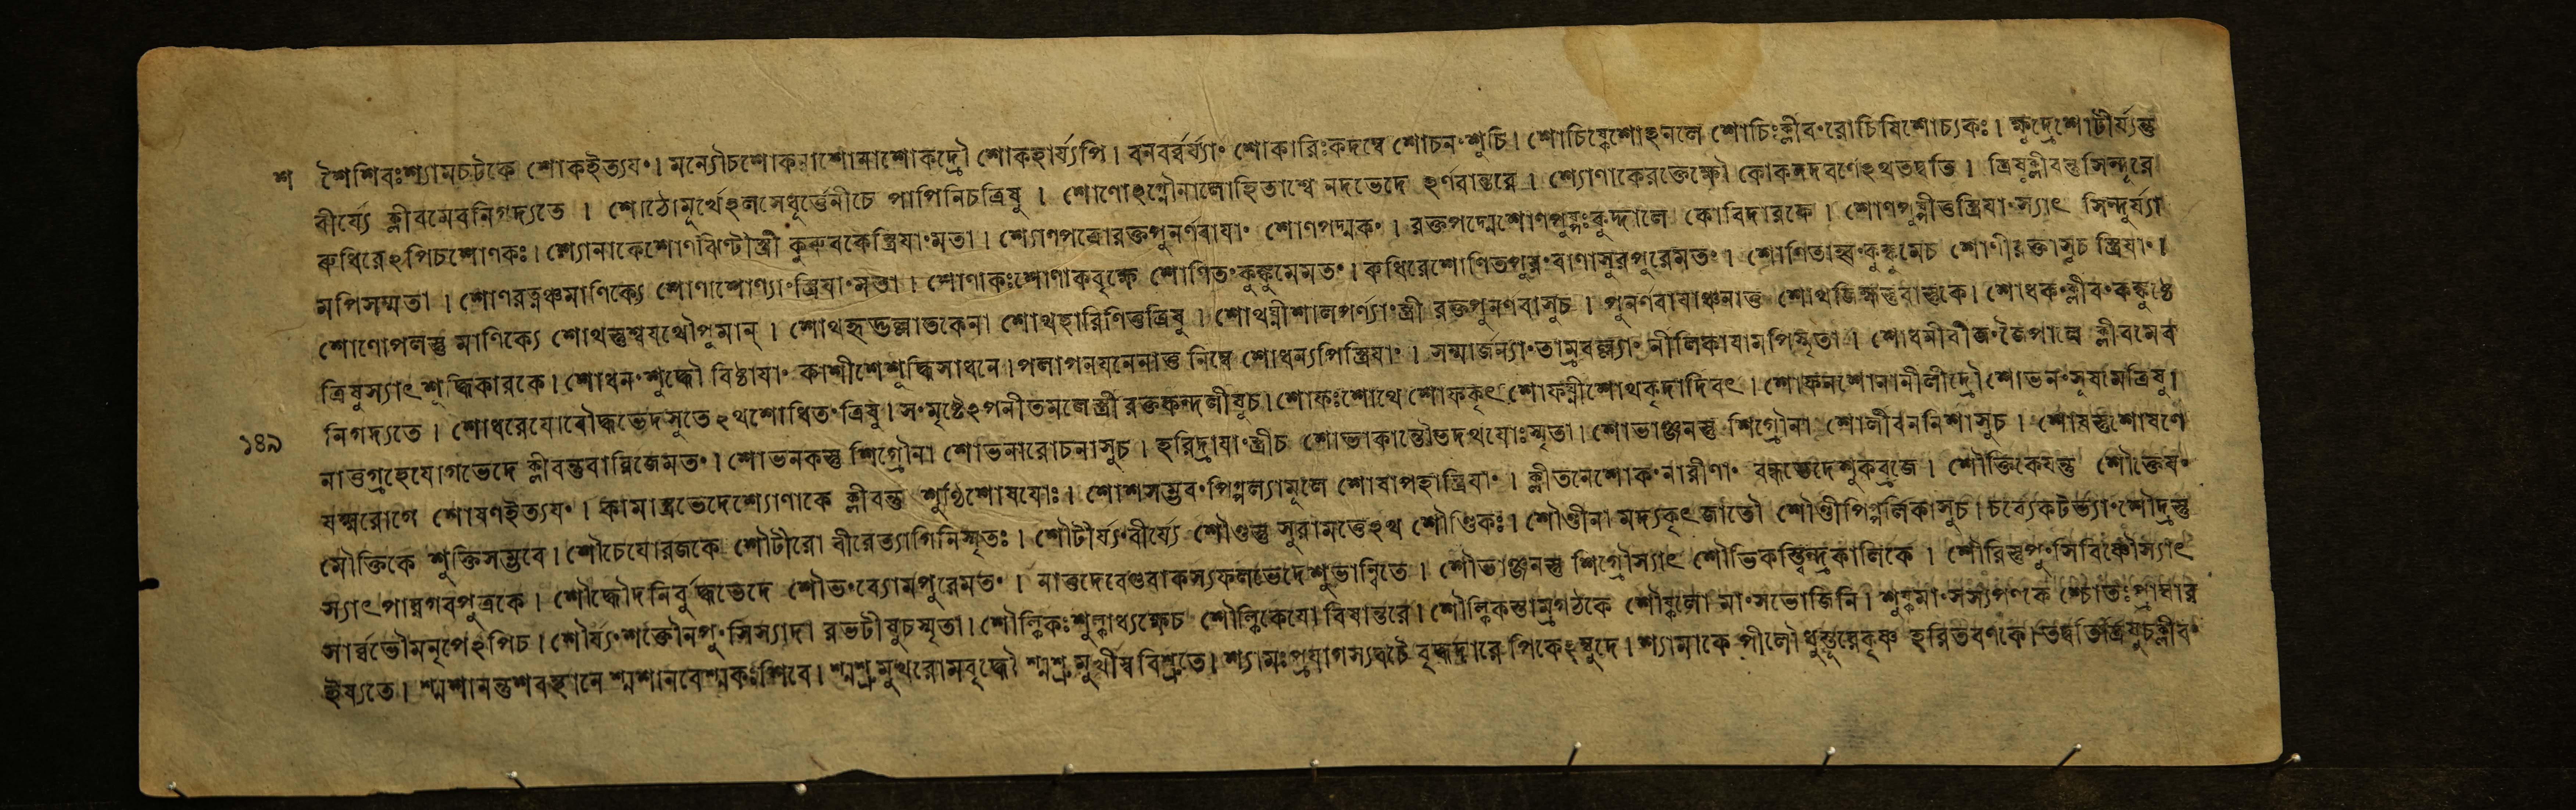 শ শৈশিবঃশ্যামচটকে শোকইত্যয়ং। মন্যৌচশোকনাশোনাশোকদ্রৌ শোকহার্য্যপি। বনবর্ব্বর্য্যাং শোকারিঃকদম্বে শোচনংশুচি। শোচিষ্কেশোঽনলে শোচিঃক্লীবংরোচিষিশোচ্যকঃ। ক্ষুদ্রেশোটীর্য্যন্তু
বীর্য্যে ক্লীবমেবনিগদ্যতে। শোঠোমূর্খেঽলসেধূর্ত্তেনীচে পাপিনিচত্রিষু। শোণোঽগ্নৌনালোহিতাশ্বে নদভেদে ঽর্ণবান্তরে। শ্যোণাকেরক্তেক্ষৌ কোকনদবর্ণেঽথতদ্বতি। ত্রিষুক্লীবন্তুসিন্দূরে
রুধিরেঽপিচশোণকঃ। শ্যোনাকেশোণঝিণ্টীস্ত্রী কুরুবকেস্ত্রিয়াংমতা। শোণপত্রোরক্তপুনর্ণবায়াং শোণপদ্মকং। রক্তপদ্মেশোণপুষ্পঃকুদ্দালে কোবিদারকে। শোণপুষ্পীত্তস্ত্রিয়াংস্যাৎ সিন্দুর্য্যা
মপিসম্মতা। শোণরত্নঞ্চমাণিক্যে শোণাশোণ্যাংস্ত্রিয়াংমতা। শোণাকঃশোণাকবৃক্ষে শোণিতংকুঙ্কুমেমতং। রুধিরেশোণিতপুরংবাণাসুরপুরেমতং। শোণিতাহ্বংকুঙ্কুমেচ শোণীরক্তাসুচ স্ত্রিয়াং।
শোণোপলস্তু মাণিক্যে শোথস্তুশ্বয়থৌপুমান্। শোথহৃদ্ভল্লাতকেনা শোথহারিণিত্তত্রিষু। শোথঘ্নীশালপর্ণ্যাংস্ত্রী রক্তপুনর্ণবাসুচ। পুনর্ণবায়াঞ্চনাত্ত শোথজিহ্মস্তুবাস্তুকে। শোধকংক্লীবংকঙ্কুষ্ঠে
ত্রিষুস্যাৎ শুদ্ধিকারকে। শোধনংশুদ্ধৌ বিষ্ঠায়াং কাশীশেশুদ্ধিসাধনে। পলাপনয়নেনাত্ত নিম্বে শোধন্যপিস্ত্রিয়াং। সম্মার্জন্যাংতাম্রবল্ল্যাং নীলিকায়ামপিস্মৃতা। শোধনীবীজংজৈপালে ক্লীবমেব
নিগদ্যতে। শোধরেয়োবৌদ্ধভেদসুতেঽথশোধিতংত্রিষু। সংমৃষ্টেঽপনীতমলেস্ত্রী রক্তকন্দলীষুচ। শোফঃশোথে শোফকৃৎ শোফঘ্নীশোথকৃদাদিবৎ। শোফনশোনানীলীদ্রৌ শোভনংসুষামত্রিষু।
১৪৯ নাত্তগ্রহেযোগভেদে ক্লীবন্তুবারিজেমতং। শোভনকস্তু শিগ্রৌনা শোভিনারোচনাসুচ। হরিদ্রায়াংস্ত্রীচ শোভাকান্তৌতদথয়োঃস্মৃতা। শোভাঞ্জনস্তু শিগ্রৌনা শোলীবননিশাসুচ। শোষস্তুশোষণে
যক্ষ্মরোগে শোষণইত্যয়ং। কামাস্ত্রভেদেশ্যোণাকে ক্লীবন্তু শুণ্ঠিশোষয়োঃ। শোশসম্ভবংপিপ্পল্যামূলে শোষাপহাস্ত্রিয়াং। ক্লীতনেশোকংনারীণাং বন্ধভেদেশুকব্রজে। শৌক্তিকেয়ন্তু শৌক্তেয়ং
মৌক্তিকে শুক্তিসম্ভবে। শৌচেয়োরজকে শৌটীরো বীরেত্যাগিনিস্মৃতঃ। শৌটীর্য্যংবীর্য্যে শৌণ্ডস্তু সুরামত্তেঽথ শৌণ্ডিকঃ। শৌণ্ডীনামদ্যকৃৎজাতৌ শৌণ্ডীপিপ্পলিকাসুচ। চর্ব্যেকটর্ভ্যাংশৌদ্রস্তু
স্যাৎপারগবপুত্রকে। শৌদ্ধৌদনিবুর্দ্ধভেদে শৌভংব্যোমপুরেমতং। নাত্তদেবেগুবাকস্যফলভেদেশুভান্বিতে। শৌভাঞ্জনস্তু শিগ্রৌস্যাৎ শৌভিকস্ত্বিন্দ্রকালিকে। শৌরিস্তুপুংসিবিষ্ণৌস্যাৎ
সার্ব্বভৌমনৃপেঽপিচ। শৌর্য্যংশক্তৌনপুংসিস্যাদা রভটীষুচস্মৃতা। শৌল্কিকঃশুল্কাধ্যক্ষেচ শৌল্কিকেয়ো বিষান্তরে। শৌল্বিকস্তাম্রগঠকে শৌষ্কলো মাংসভোজিনি। শুষ্কমাংসস্যপণকে শ্চোতঃপ্রাঘার
ইষ্যতে। শ্মশানন্তুশবস্থানে শ্মশানবেশ্মকঃশিবে। শ্মশ্রুমুখরোমবৃদ্ধৌ শ্মশ্রুমুখীষ্ববিশ্রুতে। শ্যামঃপ্রয়াগস্যবটে বৃদ্ধদারে পিকেঽম্বুদে। শ্যামাকে পীলৌধুস্তূরেকৃষ্ণ হরিতবর্ণকে। তদ্বতিত্রিষুচক্লীবং